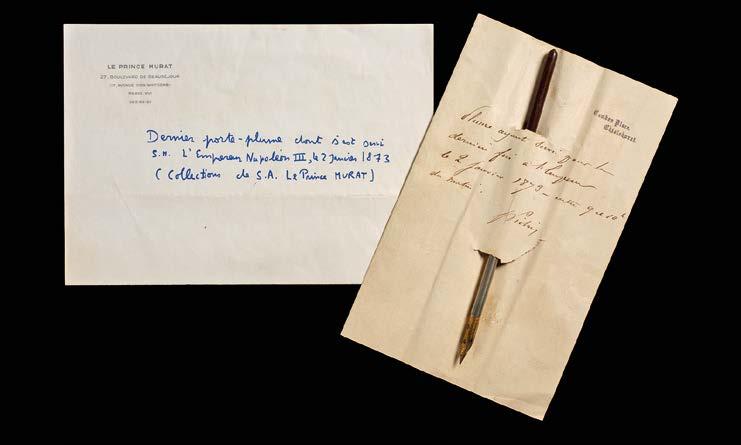 LE PRINCE MURAT
27, BOULEVARD DE BEAUSÉJOUR
PARIS, XVI
Dernier porte-plume dont s'est servi
S.M. L'Empereur Napoléon III, le 2 janvier 1873
(Collections de S.A. Le Prince MURAT)
Camden Place,
Chislehurst.
Plume ayant servi pour la
dernière fois à l'Empereur
le 2 janvier 1873 - entre 9 et 10 h
du matin.